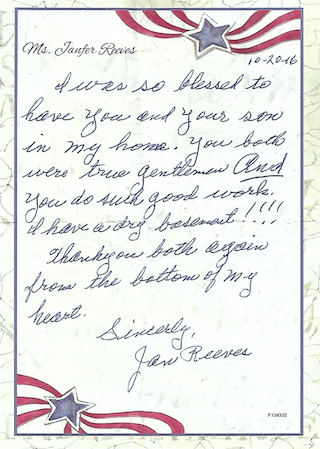 Ms. Janfer Reeves
10-20-16
I was so blessed to
have you and your son
in my home. You both
were true gentlemen And
you do such good work.
I have a dry basement!!!!
Thankyou both again
from the bottom of my
heart.
Sincerly,
Jan Reeves
F139332